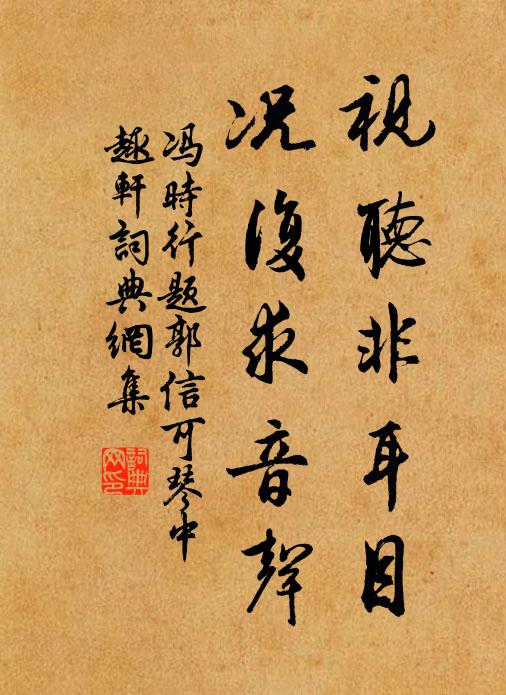 視聽非耳目
况復求音聲
馮時行題郭信可琴中
趣軒詞典網集
詞典網印